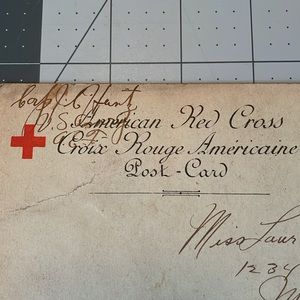 Capt
U.S.
American Red Cross
Croix Rouge Américaine
Post-Card
Miss Laur
1234